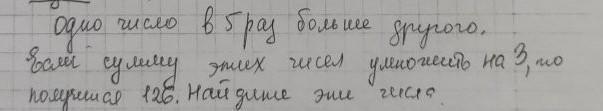 Одно число в 5 раз больше другого.
Если сумму этих чисел умножить на 3, то
получится 126. Найдите эти числа.